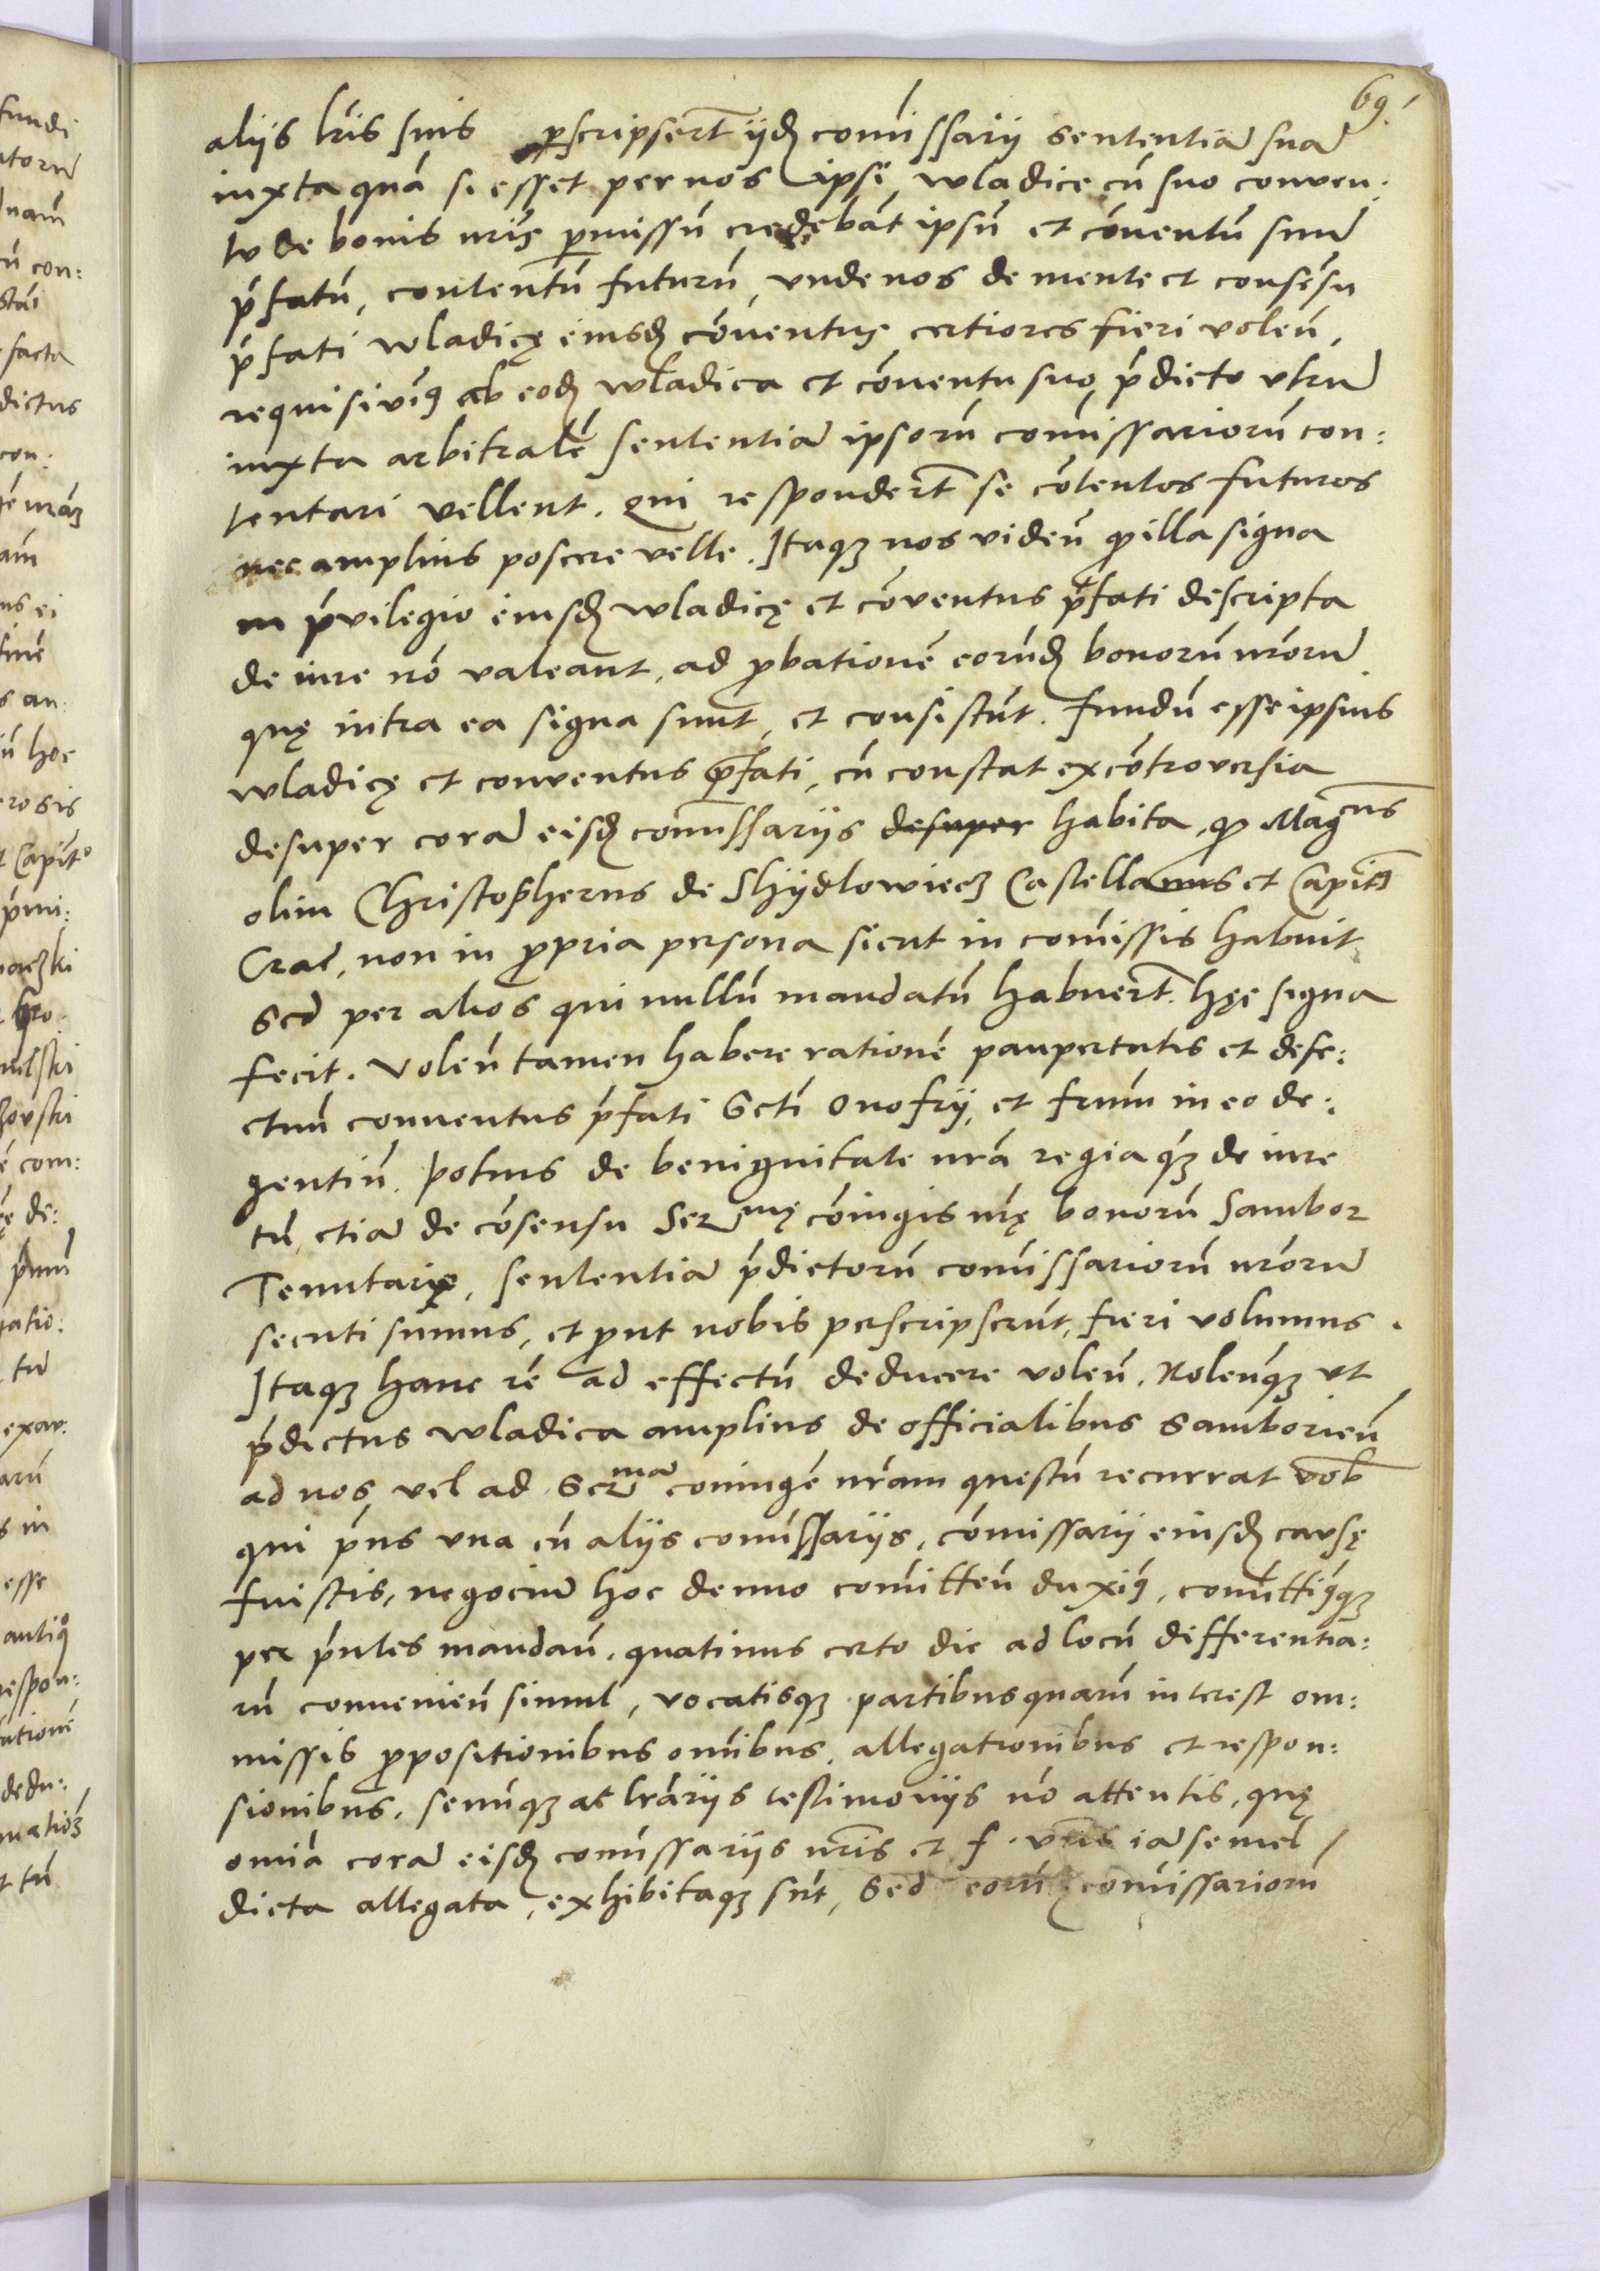 69.
aliis lr̃is suis p̱scripser̃t ijdꝫ com̃issarij sententiã suã
iuxta quã si esset per nos ipsi wladice cũ suo conven:
tu de bonis nr̃is p̱missũ credebãt ipsũ et cõuentũ suũ
p̃fatũ, contentũ futurũ, vnde nos de mente et consẽsu
p̃fati wladicę eiusdꝫ cõuentus certiores fieri voleñ,
requisivim9 ab eodꝫ wladica et cõuentu suo p̃dicto vtrũ
iuxta arbitralẽ sententiã ipsorũ com̃issariorũ con:
tentari vellent. Qui responder̃t se cõtentos futuros
nec amplius poscere velle. Itaqꝫ nos videñ ꝙ illa signa
in p̃vilegio eiusdꝫ wladicę et cõventus p̃fati descripta
de iure nõ valeant, ad ꝓbationẽ eorũdꝫ bonorũ nr̃orũ
quę intra ea signa sunt, et consistũt. fundũ esse ipsius
wladicę et conventus p̃fati, cũ constat ex cõtroversia
desuper corã eisdꝫ com̃issarijs desuper habita, ꝙ Magcus
olim Christopherus de Shÿdlowiecz Castellanus et Capits
Crac̃, non in ꝓpria persona sicut in com̃issis habuit
Sed per alios qui nullũ mandatũ habuer̃t hęc signa
fecit. Voleñ tamen habere rationẽ paupertatis et defe:
ctuũ conuentus p̃fati Scti Onofrij, et frũm in eo de:
gentiũ. Potius de benignitate nr̃a regia qꝫ de iure
tũ, etiã de cõsensu Sermę cõiugis nr̃ę bonorũ Sambor
Tenutarię, sententiã p̃dictorũ com̃issariorũ nr̃orũ
secuti sumus, et ꝓut nobis perscripserũt, fieri volumus.
Itaqꝫ hanc rẽ ad effectũ deducere voleñ. Noleñqꝫ vt
p̃dictus wladica amplius de officialibus Samborieñ
ad nos vel ad Sermã coniugẽ nr̃am questũ recurrat vob̃
qui p̃us vna cũ alijs com̃issarijs, cõmissarij eiusdꝫ causę
fuistis, negociũ hoc denuo com̃itteñ duxim9, com̃ittim9qꝫ
per p̃ntes mandañ. quatinus certo die ad locũ differentia:
rũ convenieñ simul, vocatisqꝫ partibus quarũ interest om:
missis ꝓpositionibus om̃ibus, allegationibus et respon:
sionibus. senũqꝫ ac lr̃arijs testimonijs nõ attentis, quę
om̃ia corã eisdꝫ com̃issarijs nr̃is et f. vr̃is iã semel
dicta allegata, exhibitaqꝫ sũt, Sed eorũ com̃issariorũ